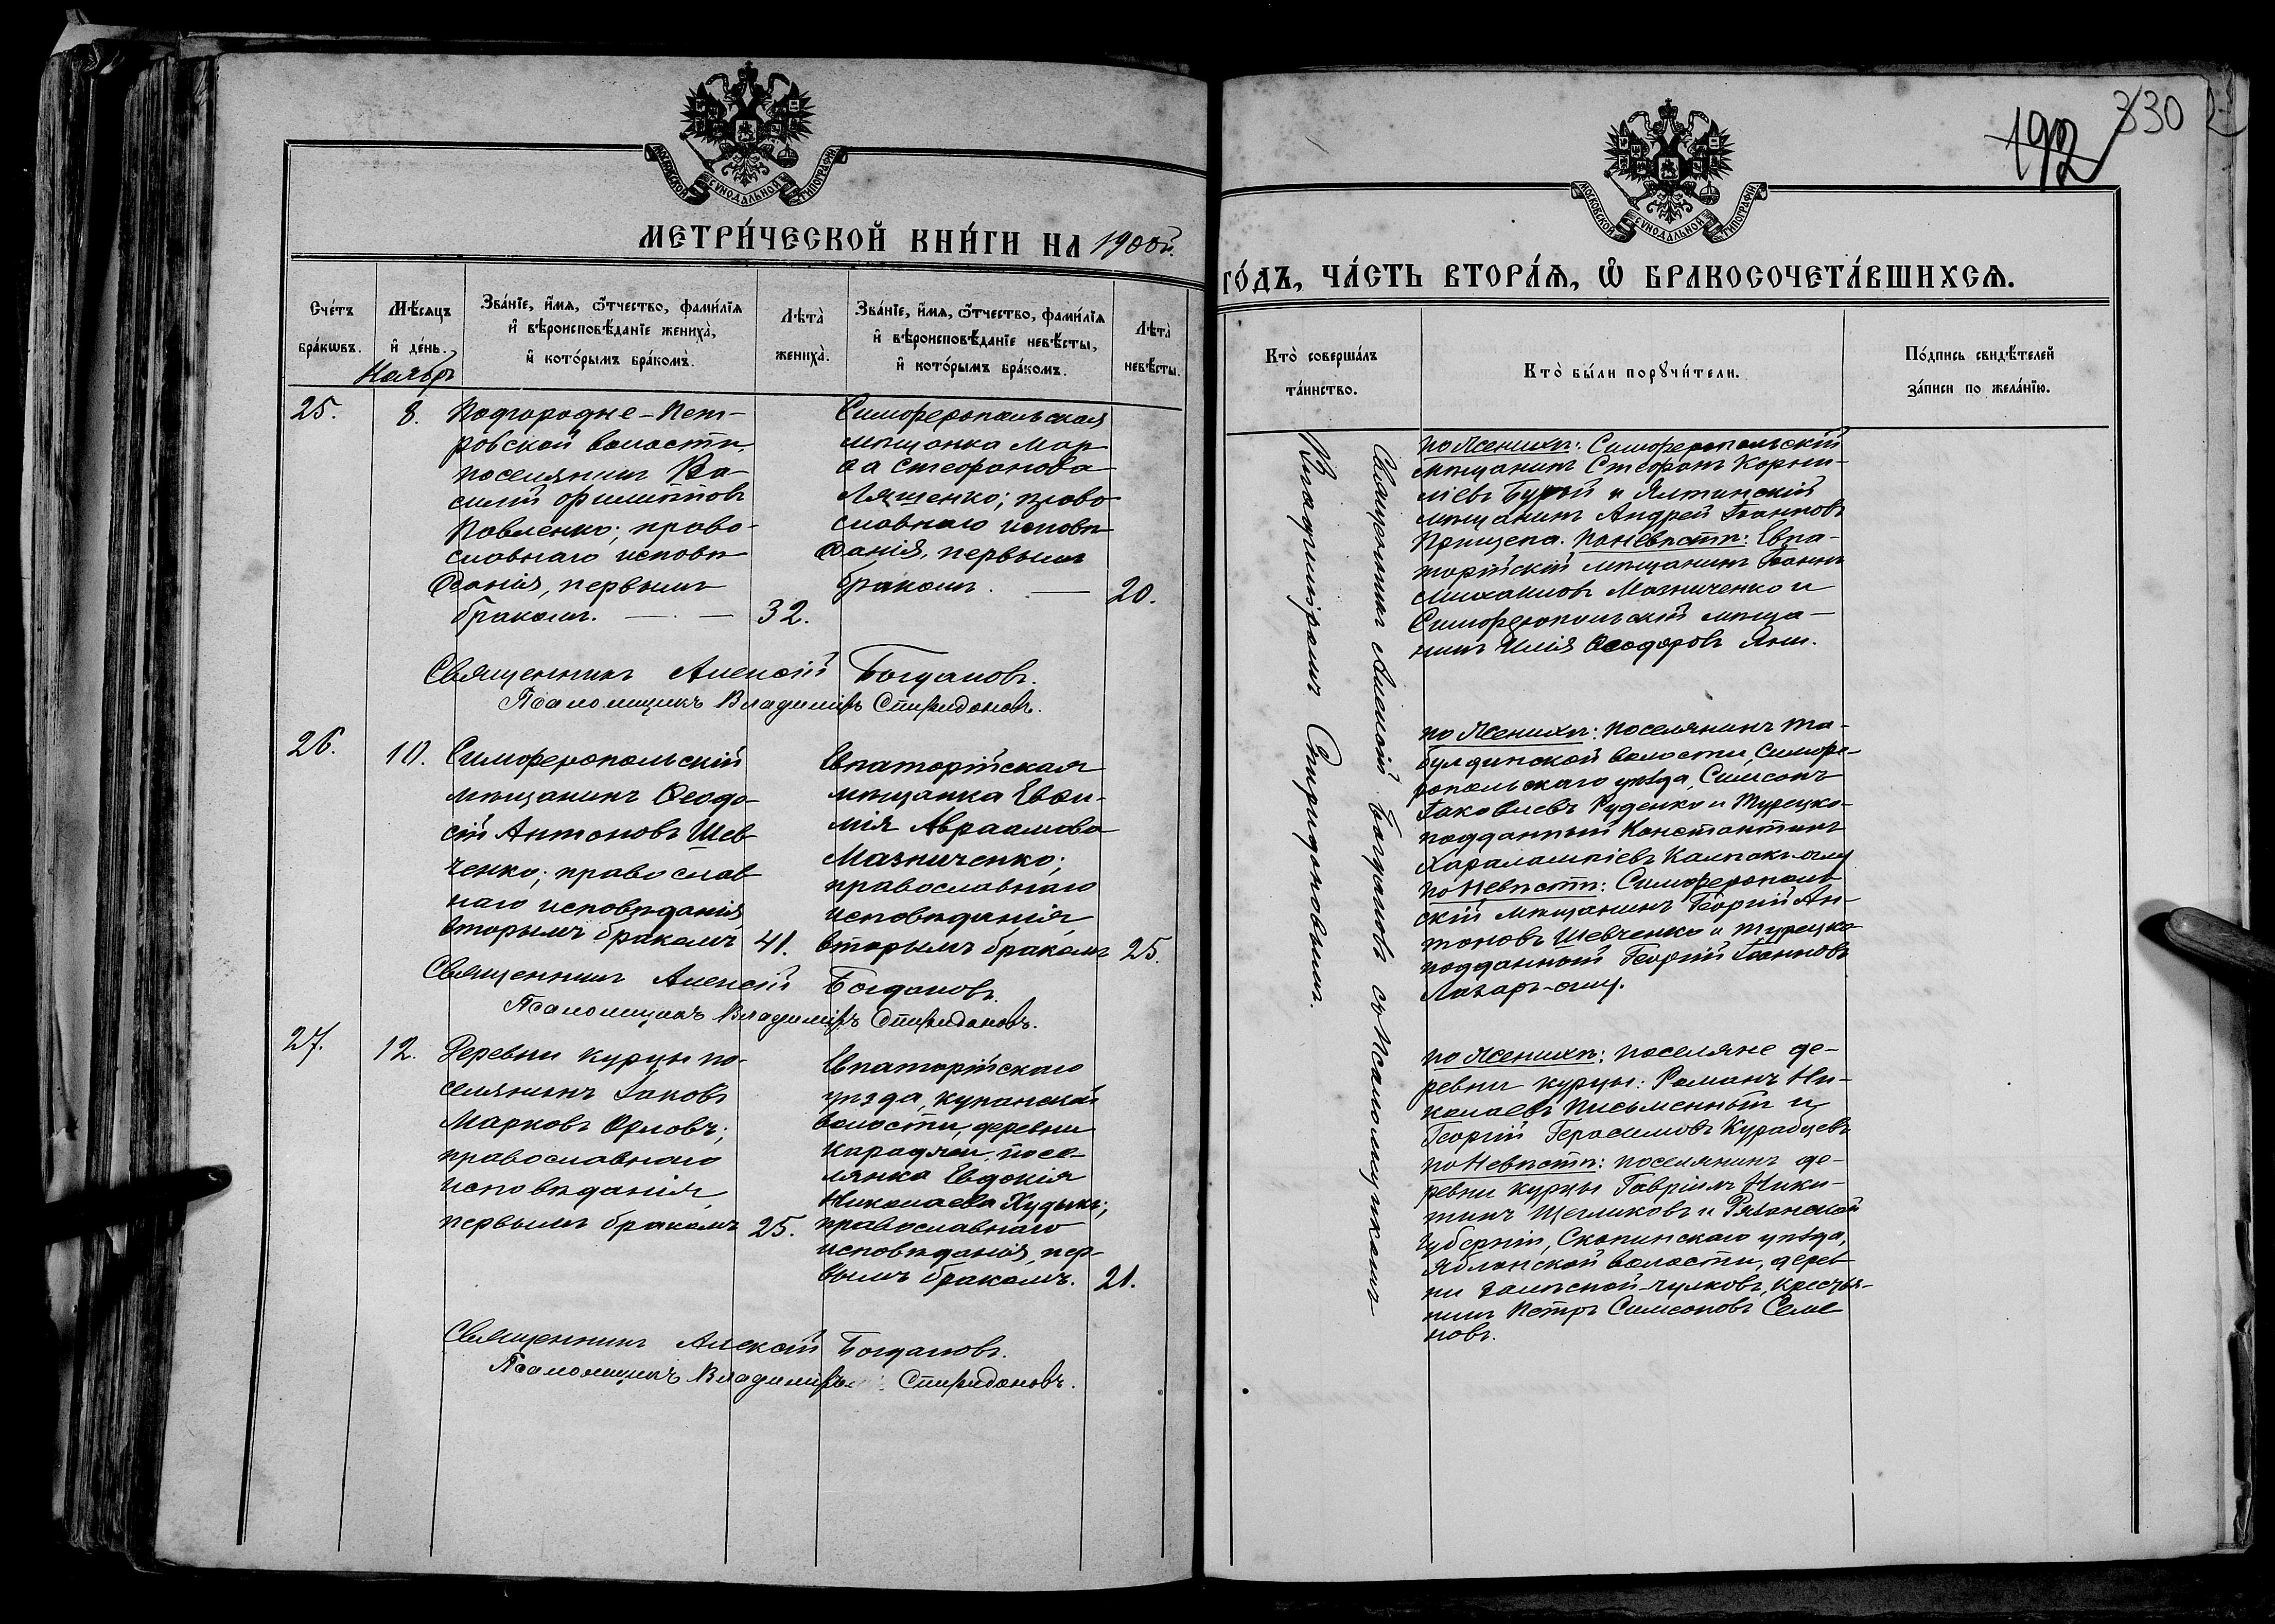 МОСКОВСКОЙ СѴНОДАЛЬНОЙ ТИПОГРАФІИ
МЕТРИ́ЧЕСКОЙ КНИ́ГИ НА 1900й.
Сче́тъ
бра́кѡвъ.
Мѣ́сяцъ
и҆ де́нь.
Ноябрь
Зва́нїе, и҆́мѧ, ѻ҆́тчество, фами́лїѧ
и҆ вѣроисповѣ́данїе жениха̀,
и҆ кото́рымъ бра́комъ.
Лѣта̀
жениха̀.
Зва́нїе, и҆́мѧ, ѻ҆́тчество, фами́лїѧ
и҆ вѣроисповѣ́данїе невѣ́сты,
и҆ кото́рымъ бра́комъ.
Лѣта̀
невѣ́сты.
25.
8.
Подгородне-Пет-
ровской волости,
поселянинъ Ва-
силій Филипповъ
Павленко; право-
славнаго исповѣ
данія, первымъ
бракомъ.
32.
Симферопольская
мѣщанка Мар
ѳа Стефанова
Ляшенко; право
славнаго исповѣ
данія, первымъ
бракомъ.
20.
Священникъ Алексій Богдановъ.
Псаломщикъ Владиміръ Спиридоновъ.
26.
10.
Симферопольскій
мѣщанинъ Ѳеодо-
сій Антоновъ Шев
ченко; православ
наго исповѣданія,
вторымъ бракомъ
41.
Евпаторійская
мѣщанка Евѳи-
мія Авраамова
Мазниченко;
православнаго
исповѣданія,
вторымъ бракомъ
25.
Священникъ Алексій Богдановъ.
Псаломщикъ Владиміръ Спиридоновъ.
27.
12.
Деревни Курцы по-
селянинъ Іаковъ
Марковъ Орловъ;
православнаго
исповѣданія,
первымъ бракомъ
25.
Евпаторійскаго
уѣзда, Курманской
волости, деревни
посе-
лянка Евдокія
Николаева Худыкъ;
православнаго
исповѣданія, пер-
вымъ бракомъ.
21.
Священникъ Алексій Богдановъ.
Псаломщикъ Владиміръ Спиридоновъ.
192
330
МОСКОВСКОЙ СѴНОДАЛЬНОЙ ТИПОГРАФІИ
ГО́ДЪ, ЧА́СТЬ ВТОРА́Ѧ, Ѽ БРАКОСОЧЕТА́ВШИХСѦ.
Кто̀ соверша́лъ
та́инство.
Кто̀ бы́ли порꙋчи́тели.
По́дпись свидѣ́телей
за́писи по жела́нїю.
Священникъ Алексій Богдановъ съ Псаломщикомъ
Владиміромъ Спиридоновымъ.
По Женихѣ: Симферопольскій
мѣщанинъ Стефанъ Корни-
ліевъ Бурый и Ялтинскій
мѣщанинъ Андрей Іоанновъ
Прищепа. По Невѣстѣ: Евпа-
торійскій мѣщанинъ Іоаннъ
Михаиловъ Мазниченко и
Симферопольскій мѣща-
нинъ Илія Ѳеодоровъ
По Женихѣ: поселянинъ Та-
булдинской волости, Симфе-
ропольскаго уѣзда, Симеонъ
Іаковлевъ Руденко и Турецко-
подданный Константинъ
Харалампіевъ Калпакъ-оглу
По Невѣстѣ: Симферополь
скій мѣщанинъ Георгій Ан-
тоновъ Шевченко и Турецко
подданный Георгій Іоанновъ
Лазаръ-оглу.
По Женихѣ: поселяне де-
ревни Курцы: Романъ Ни-
колаевъ Письменный и
Георгій Герасимовъ Курабцевъ
По Невѣстѣ: поселянинъ де-
ревни Курцы Гавріилъ Ники-
тинъ Щегликовъ и Рязанской
губерніи, Скопинскаго уѣзда,
волости, дерев
ни крестья-
нинъ Петръ Симеоновъ Семе
новъ.